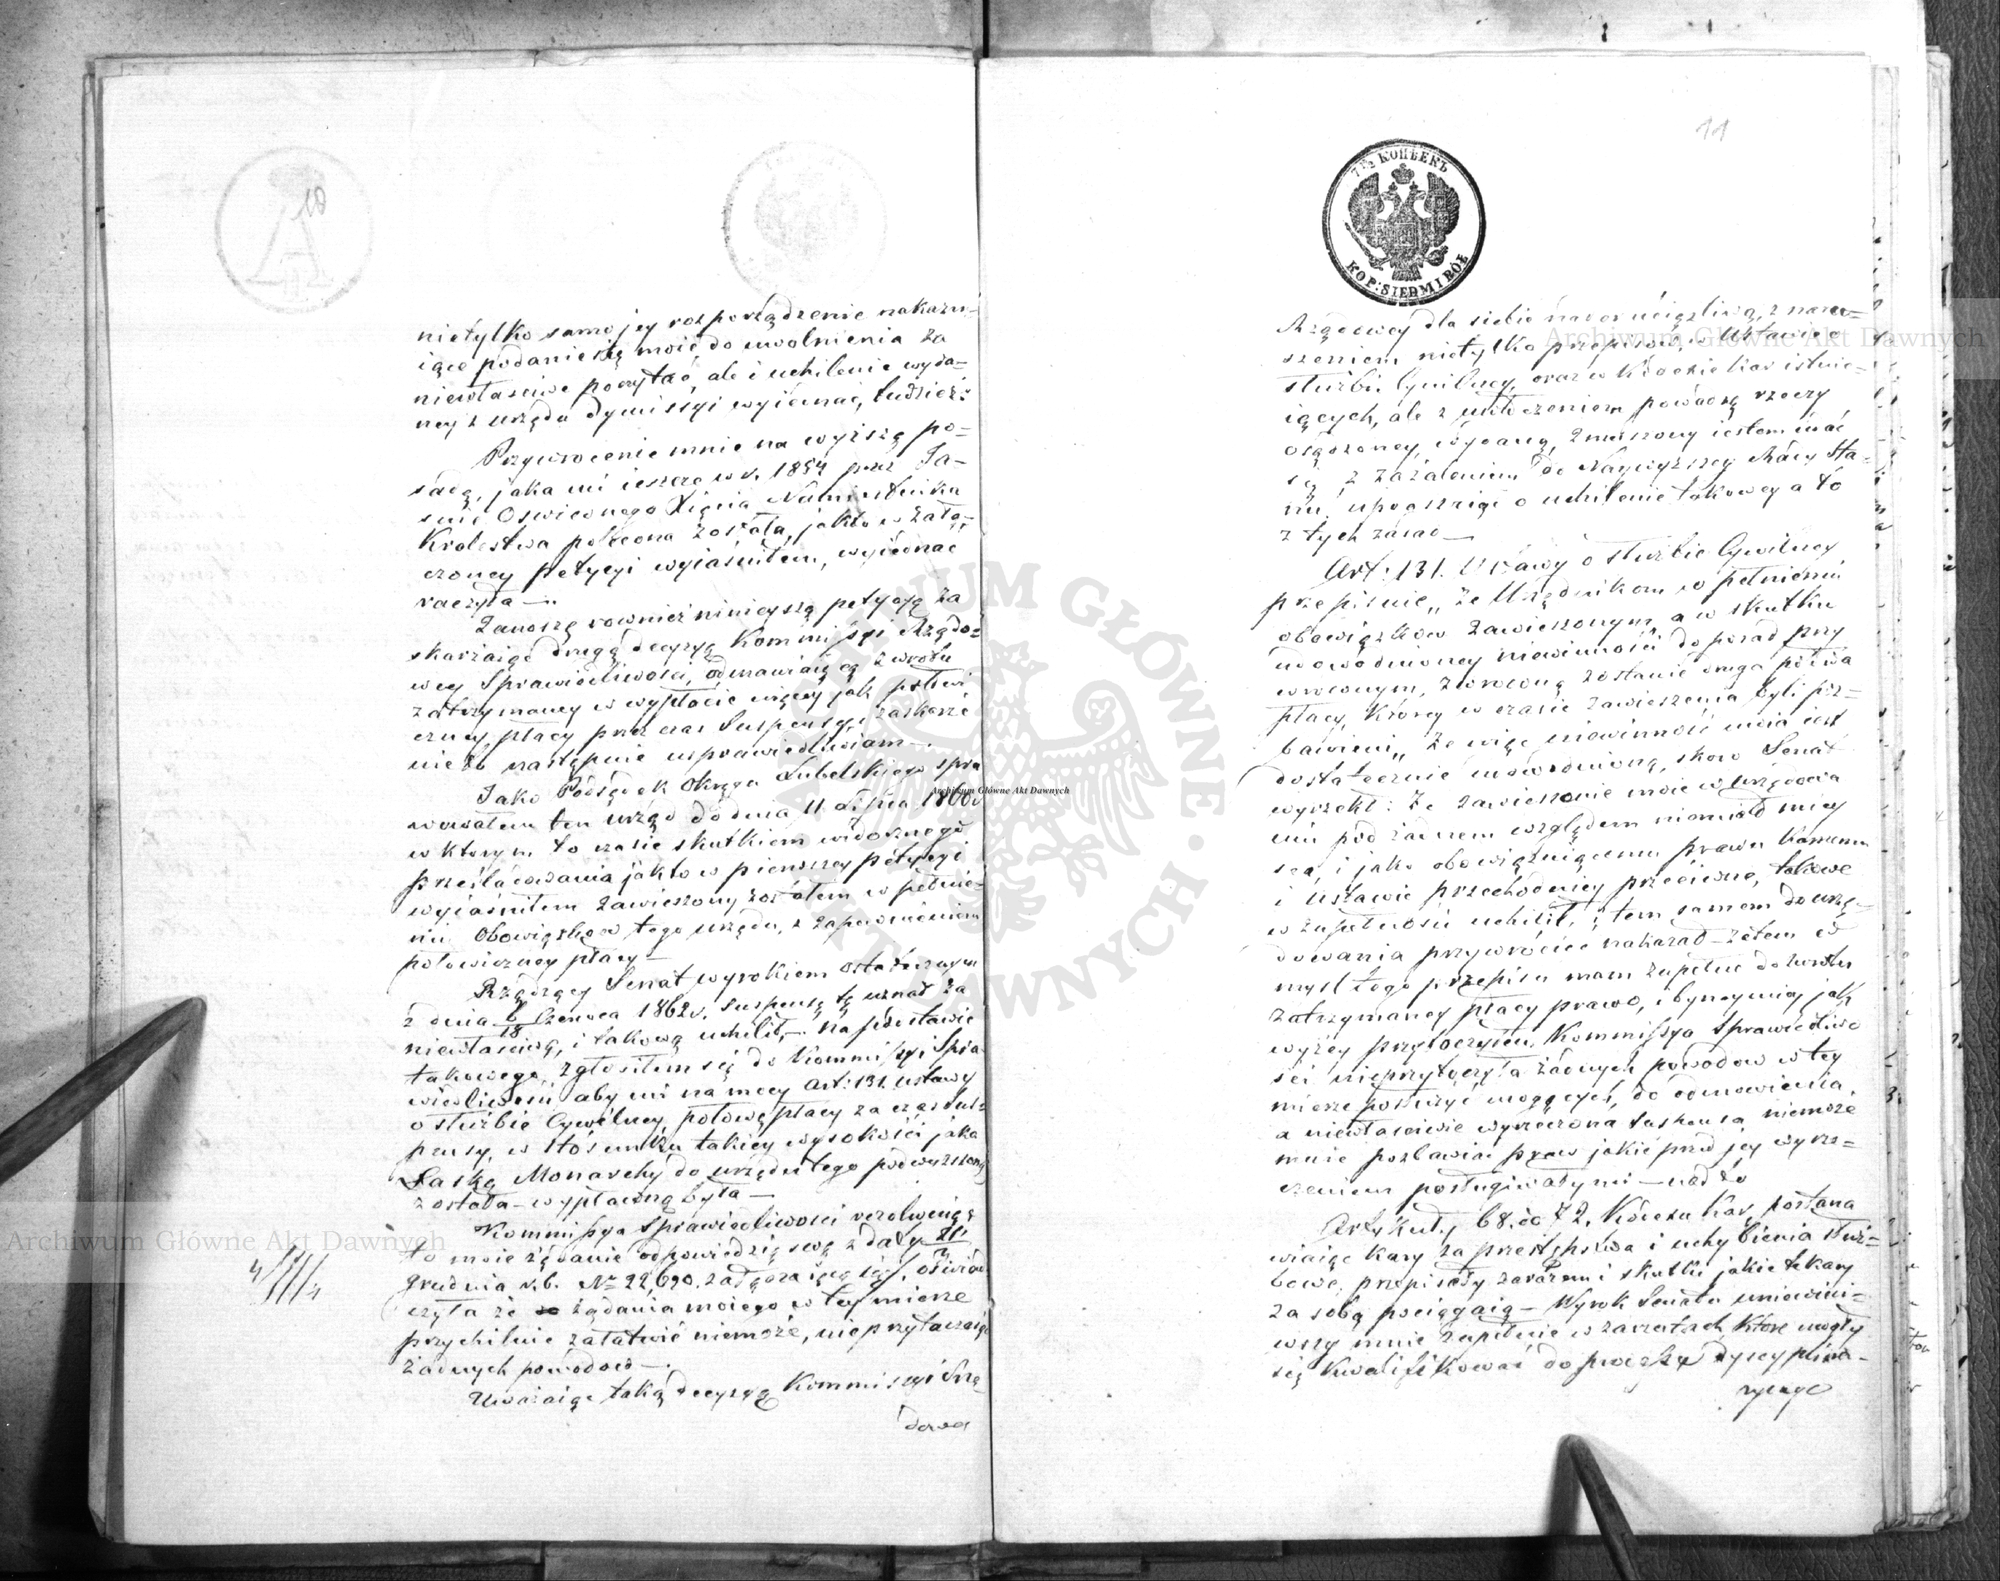 10
nietylko samo jey rozporządzenie nakazu-
iące podanie się moie do uwolnienia za
niewłaściwe poczytać, ale i uchilenie wyda-
ney z urzędu dymissyi wyiednać, tudzież:
Przywrocenie mnie na wyższą po-
sadę, jaka mi ieszcze w r. 1854 przez Ja-
śnie Oswieconego Xięcia Namiestnika
Krolestwa poleconą została, jak to w załą-
czoney petycyi wyiaśniłem, wyiednać
raczyła —.
Zanoszę rownież ninieyszą petycyą za
skarżaiąc drugą decyzyą Kommissyi Rządo-
wey Sprawiedliwości, odmawiaiącą zwrotu
zatrzymaney w wypłacie więcey jak połowi
czney płacy przez czas Suspensyi zaskarże
nie to następnie usprawiedliwiam —.
Jako Podsędek Okręgu Lubelskiego spra
wowałem ten urząd do dnia 11 Lipca 1860 r
w ktorym to czasie skutkiem widocznego
prześladowania jak to w pierwszey petycyi
wyiaśniłem zawieszony zostałem w pełnie-
niu Obowiązkow tego urzędu, z zapewnieniem
połowiczney płacy —
Rządzący Senat wyrokiem ostatecznym
z dnia 6/18 Czerwca 1862 r. suspensę tę uznał za
niewłaściwą, i takową uchilił, — na podstawie
takowego, zgłosiłem się do Kommissyi Spra
wiedliwości aby mi na mocy art: 131. ustawy
o służbie Cywilney, połowę płacy za czas sus-
pensy, w stósunku takiey wysokości jaka
Łaską Monarchy do urzędu tego podwyższoną
została — wypłaconą była —
Kommissya Sprawiedliwości rezolwuiąc
to moie żądanie odpowiedzią swą z daty
Grudnia r. b. No 22,690. załączaiącą się, oświad
czyła że żądania moiego w tey mierze
przychilnie załatwić niemoże, nieprzytaczaiąc
żadnych powodow —.
Uważaiąc taką decyzyą Kommissyi Rzą-
dowey
11
7 1/2 КОПѢЕКЪ
KOP: SIEDM I PÓŁ
Rządowey dla siebie nader uciążliwą, z naru-
szeniem nietylko przepisów, w Ustawie o
służbie Cywilney, oraz w Kodexie kar istnie-
iących, ale z ubliżeniem powadze rzeczy
osądzoney, wydaną, zmuszony iestem udać
się z zażaleniem do Naywyższey Rady Sta-
nu, upraszaiąc o uchilenie takowey a to
z tych zasad —
Art: 131. Ustawy o służbie Cywilney
przepisuie „że Urzędnikom w pełnieniu
obowiązkow zawieszonym, a w skutku
udowodnioney niewinności do posad przy
wroconym, zwroconą zostanie druga połowa
płacy, ktorey w czasie zawieszenia byli poz-
bawieni„ że więc niewinność moia iest
dostatecznie udowodnioną, skoro Senat
wyrzekł: że zawieszenie moie w urzędowa
niu pod żadnem względem niemiało miey
sca, i jako obowiązuiącemu prawu karnemu
i ustawie przechodniey przeciwne, takowe
w zupełnosci uchilił, i tem samem do urzę-
dowania przywrócić nakazał — zatem w
myśl tego przepisu mam zupełne do zwrotu
zatrzymaney płacy prawo, i bynaymniey jak
wyżey przytoczyłem Kommissya Sprawiedliwo
ści nieprzytoczyła żadnych powodow w tey
mierze posłużyć mogących, do odmowienia,
a niewłaściwie wyrzeczona suspensa niemoże
mnie pozbawiać praw jakie przed jey wyrze-
czeniem posługiwały mi — nadto
Artykuł, 68. do 72. Kodexu Kar, postana
wiaiąc kary za przestępstwa i uchybienia służ-
bowe, przepisały zarazem i skutki jakie te kary
za sobą pociągaią — Wyrok Senatu uniewinni-
wszy mnie zupełnie w zarzutach, ktore mogły
się kwalifikować do processu dyscyplina-
rnego